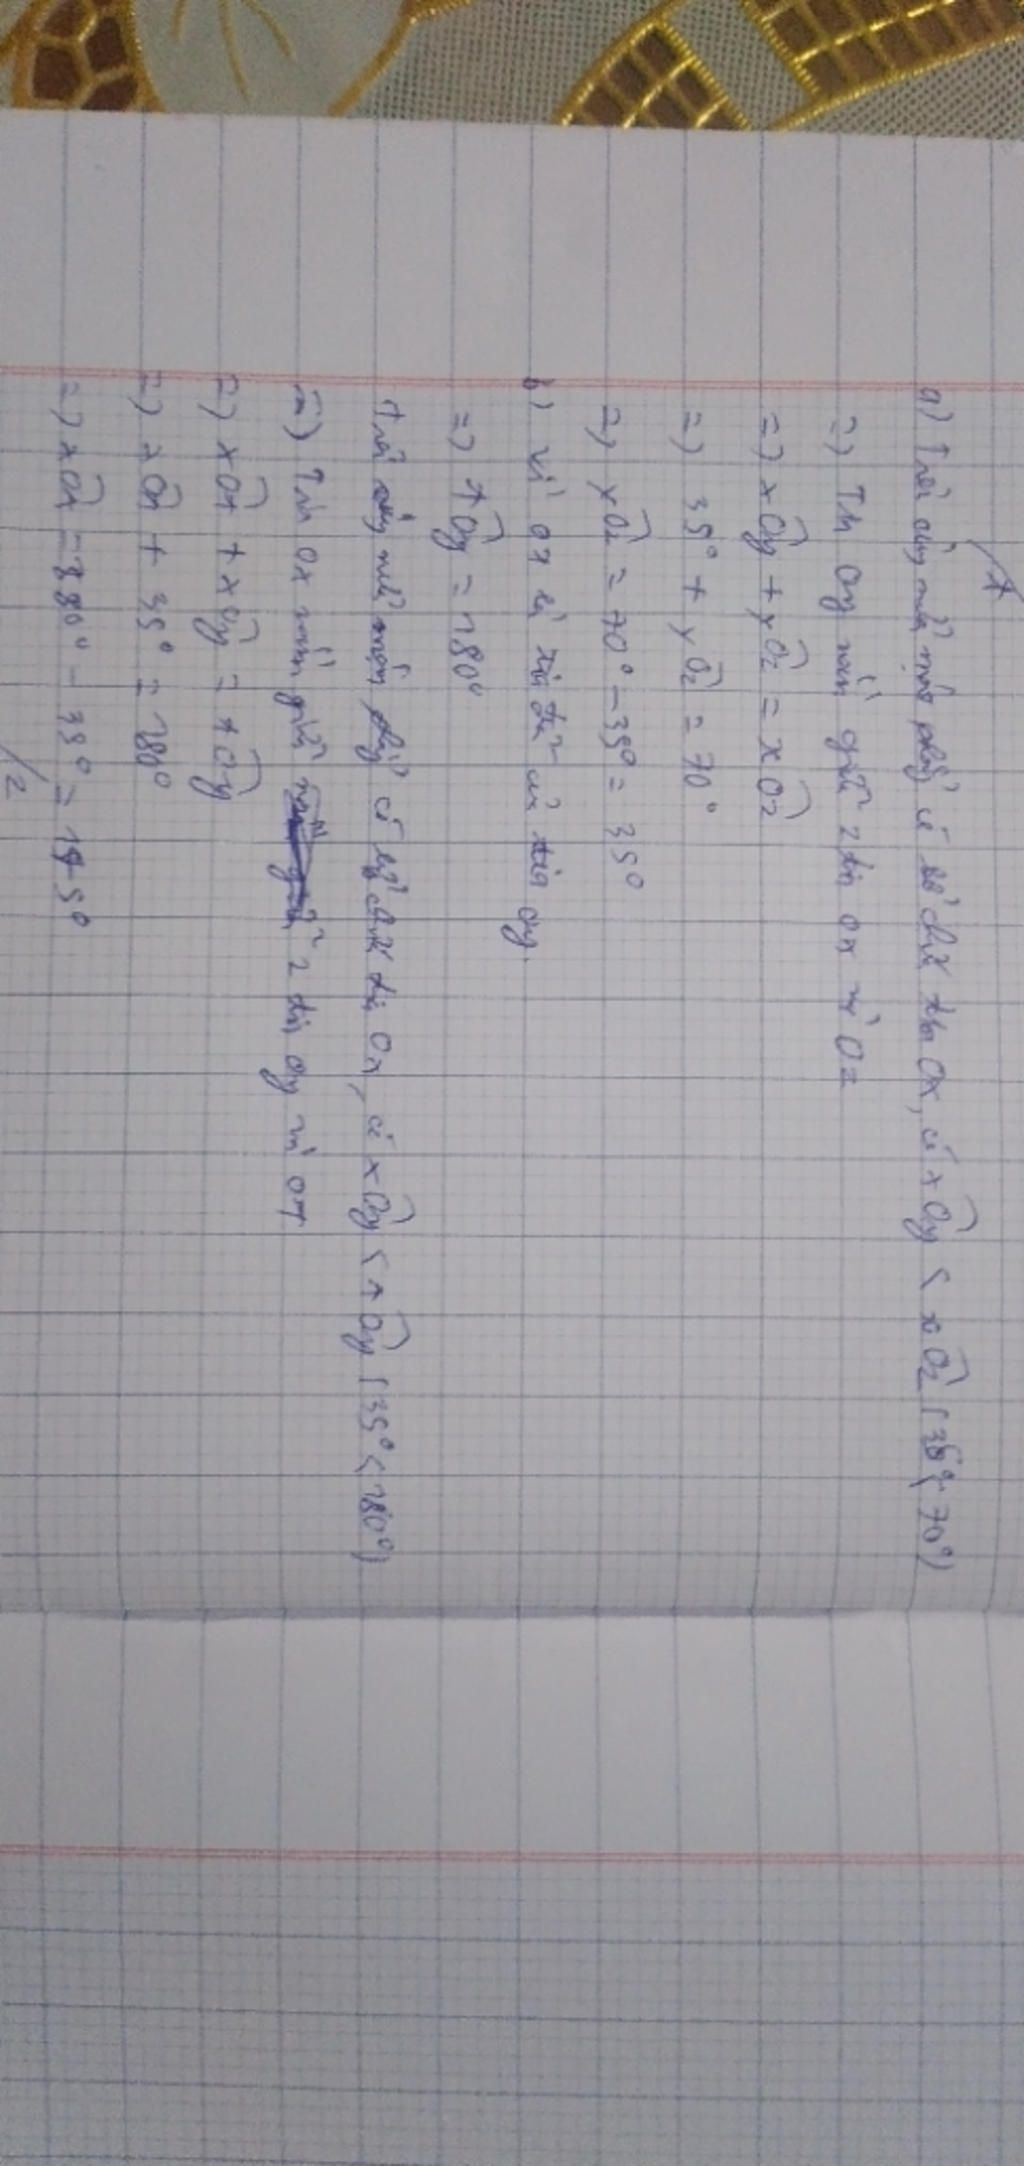 t
a) Trên cùng nửa mặt phẳng có bờ chứa tia Ox, có xÔy < xÔz (35° < 70°)
=) Tia Oy nằm giữa 2 tia Ox và Oz
=) xÔy + yÔz = xÔz
=) 35° + yÔz = 70°
=) yÔz = 70° - 35° = 35°
b) Vì Ot là tia đối của tia Oy.
=) tÔy = 180°
Trên cùng nửa mặt phẳng có bờ chứa tia , có xÔy < tÔy (35° < 180°)
=) Tia Ox nằm giữa 2 tia Oy và Ot
=) xÔt + xÔy = tÔy
=) xÔt + 35° = 180°
=) xÔt = 180° - 35° = 145°
/z